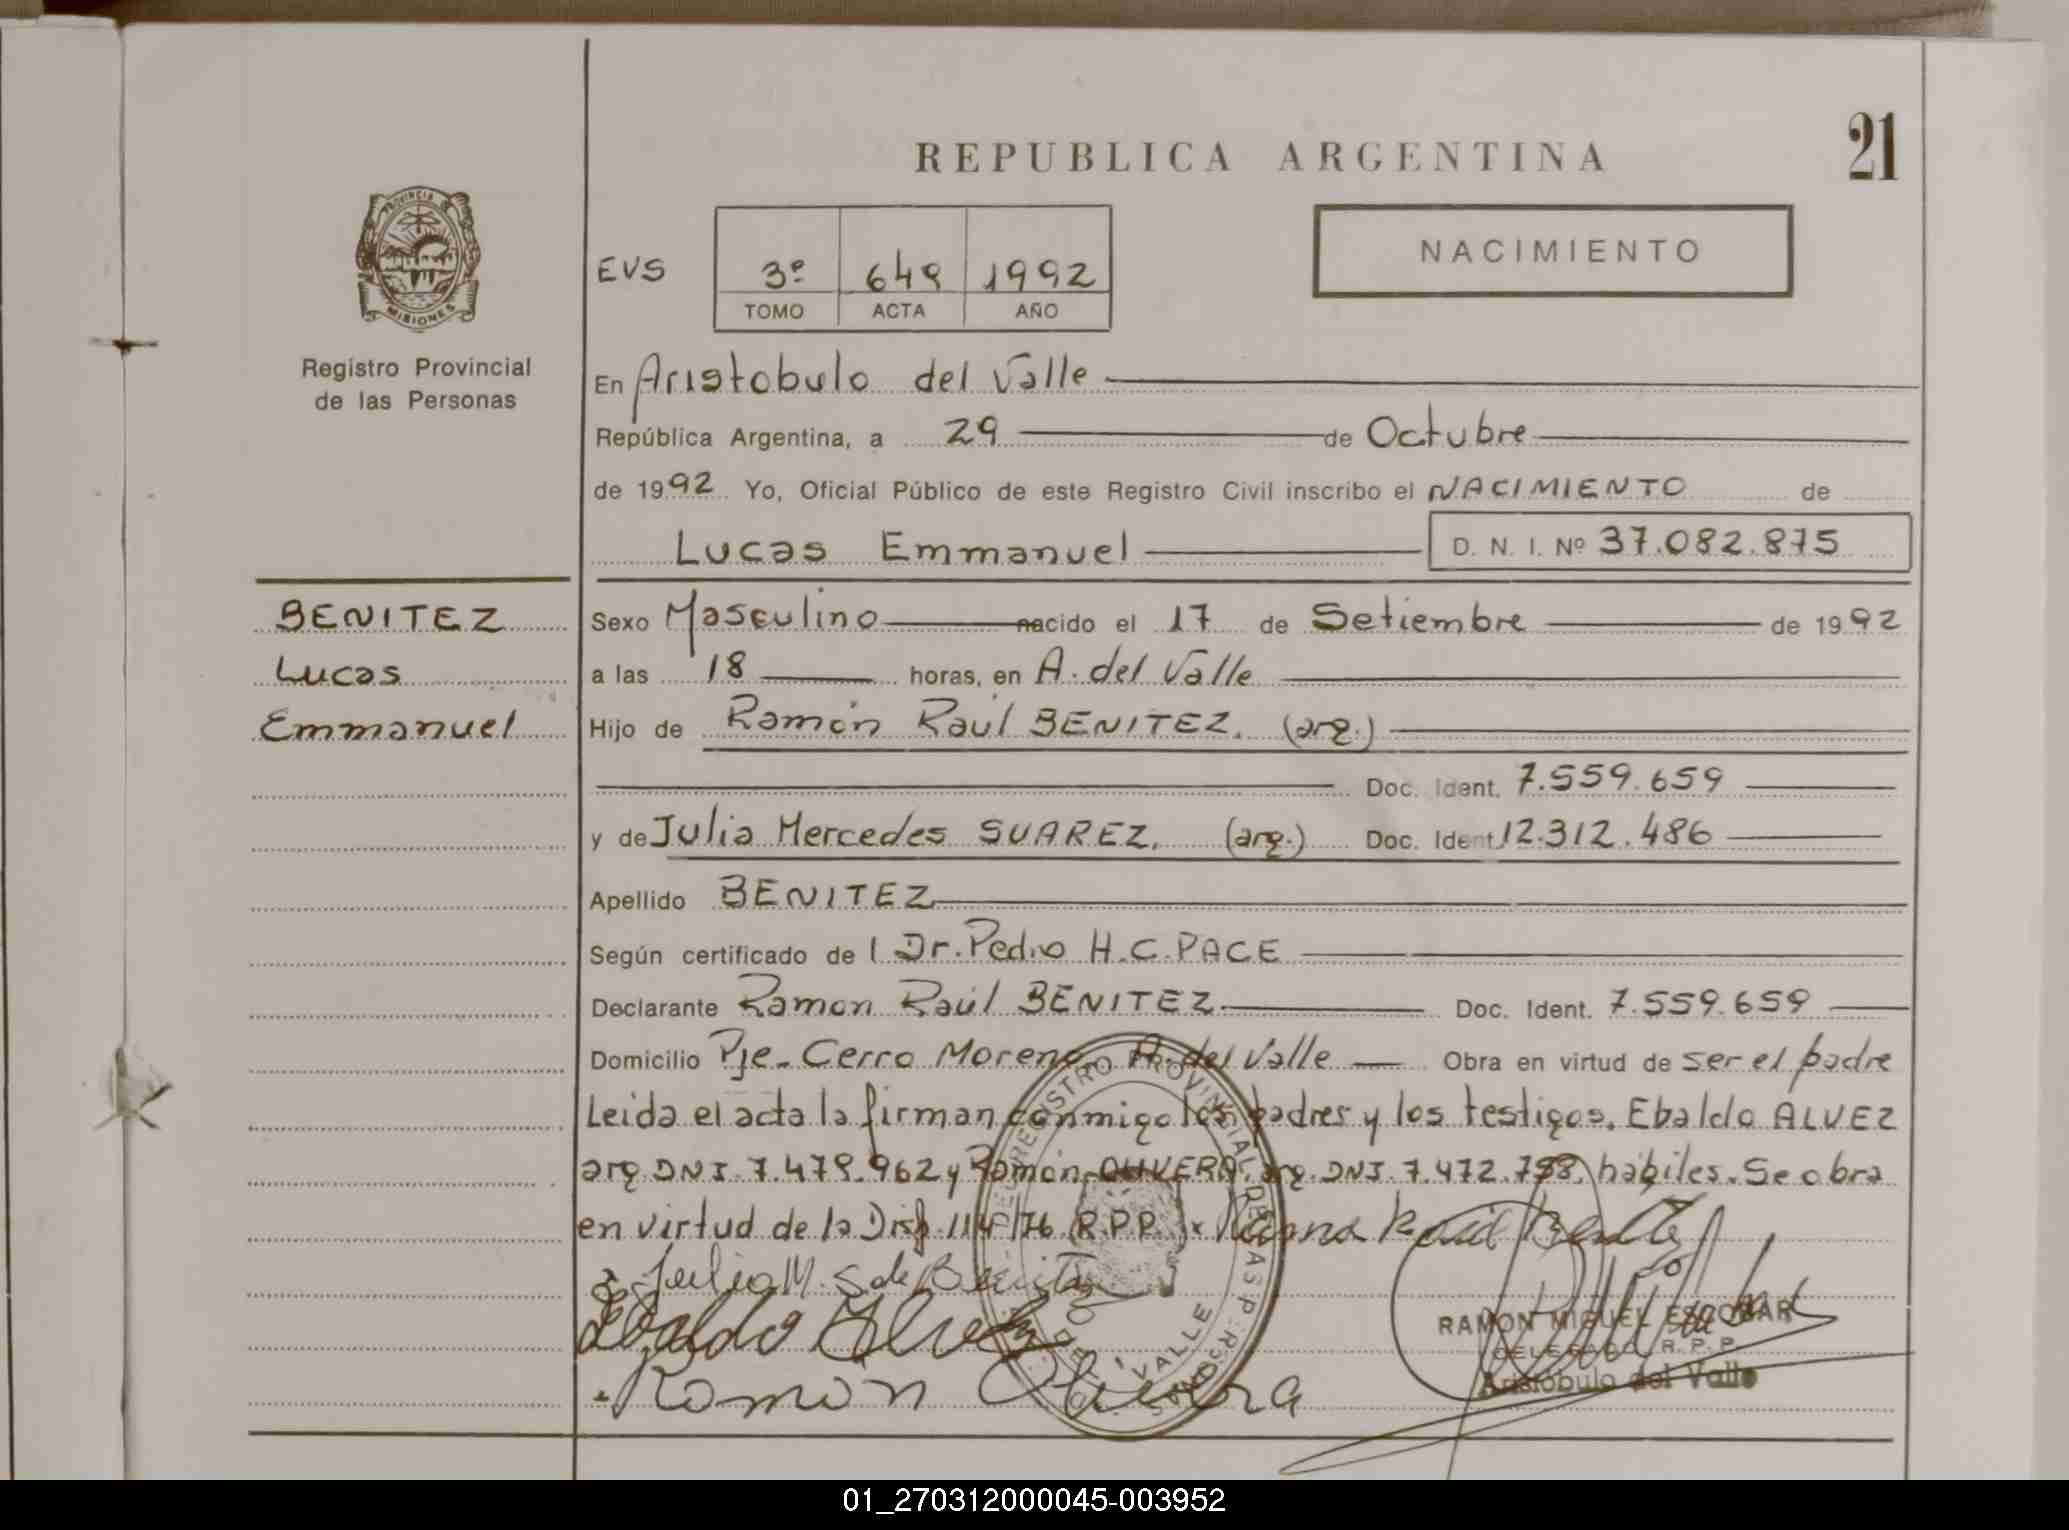 REPUBLICA ARGENTINA
21
PROVINCIA DE
MISIONES
Registro Provincial
de las Personas
EVS
3º 649 1992
TOMO ACTA AÑO
NACIMIENTO
En Aristobulo del Valle
República Argentina, a 29 de Octubre
de 1992 Yo, Oficial Público de este Registro Civil inscribo el NACIMIENTO de
Lucas Emmanuel D. N. I. Nº 37.082.875
BENITEZ
Lucas
Emmanuel
Sexo Masculino nacido el 17 de Setiembre de 1992
a las 18 horas, en A. del Valle
Hijo de Ramón Raúl BENITEZ. (arg.)
Doc. Ident. 7.559.659
y de Julia Mercedes SUAREZ. (arg.) Doc. Ident. 12.312.486
Apellido BENITEZ
Según certificado de l Dr. Pedro H.C. PACE
Declarante Ramon Raúl BENITEZ Doc. Ident. 7.559.659
Domicilio Pje. Cerro Moreno A. del Valle Obra en virtud de ser el padre
Leida el acta la firman conmigo los padres y los testigos. Ebaldo ALVEZ
arg. DNI. 7.479.962 y Ramón OLIVERA, arg. DNI. 7.472.798, hábiles. Se obra
en virtud de la Disp. 114/76 R.P.P.
Julia M. S de Benitez
Ebaldo Alvez
Ramon Olivera
REGISTRO PROVINCIAL DE LAS PERSONAS
DEL VALLE
RAMON MIGUEL ESCOBAR
DELEGADO R.P.P.
Aristóbulo del Valle
01_270312000045-003952